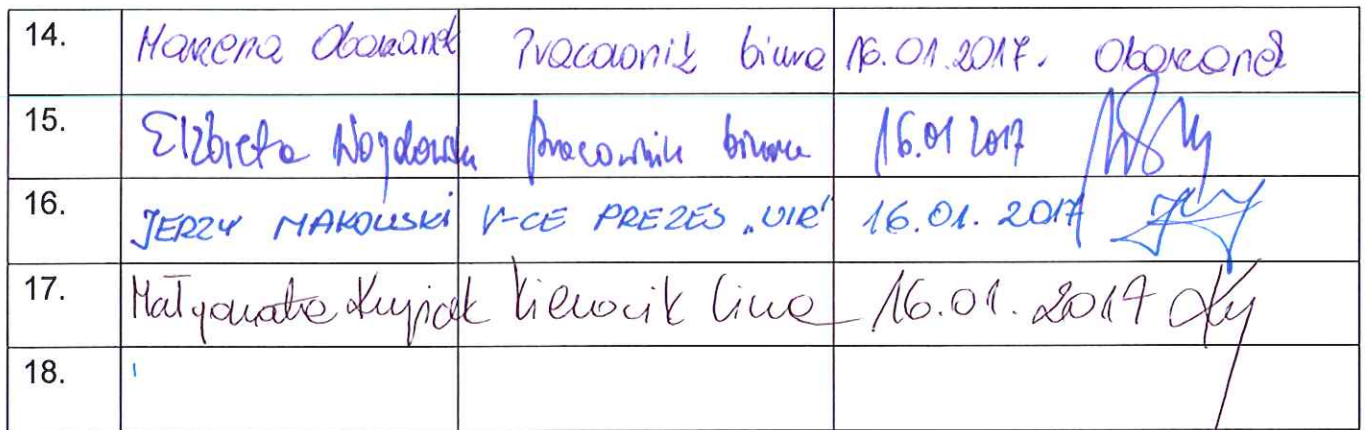 14. Marzena Obarzanek Pracownik biura 16.01.2017. Obarzanek
15. Elżbieta pracownik biura 16.01 2017
16. JERZY MAKOWSKI V-CE PREZES „WIR" 16.01.2017
17. Małgorzata Kierownik biura 16.01.2017
18.